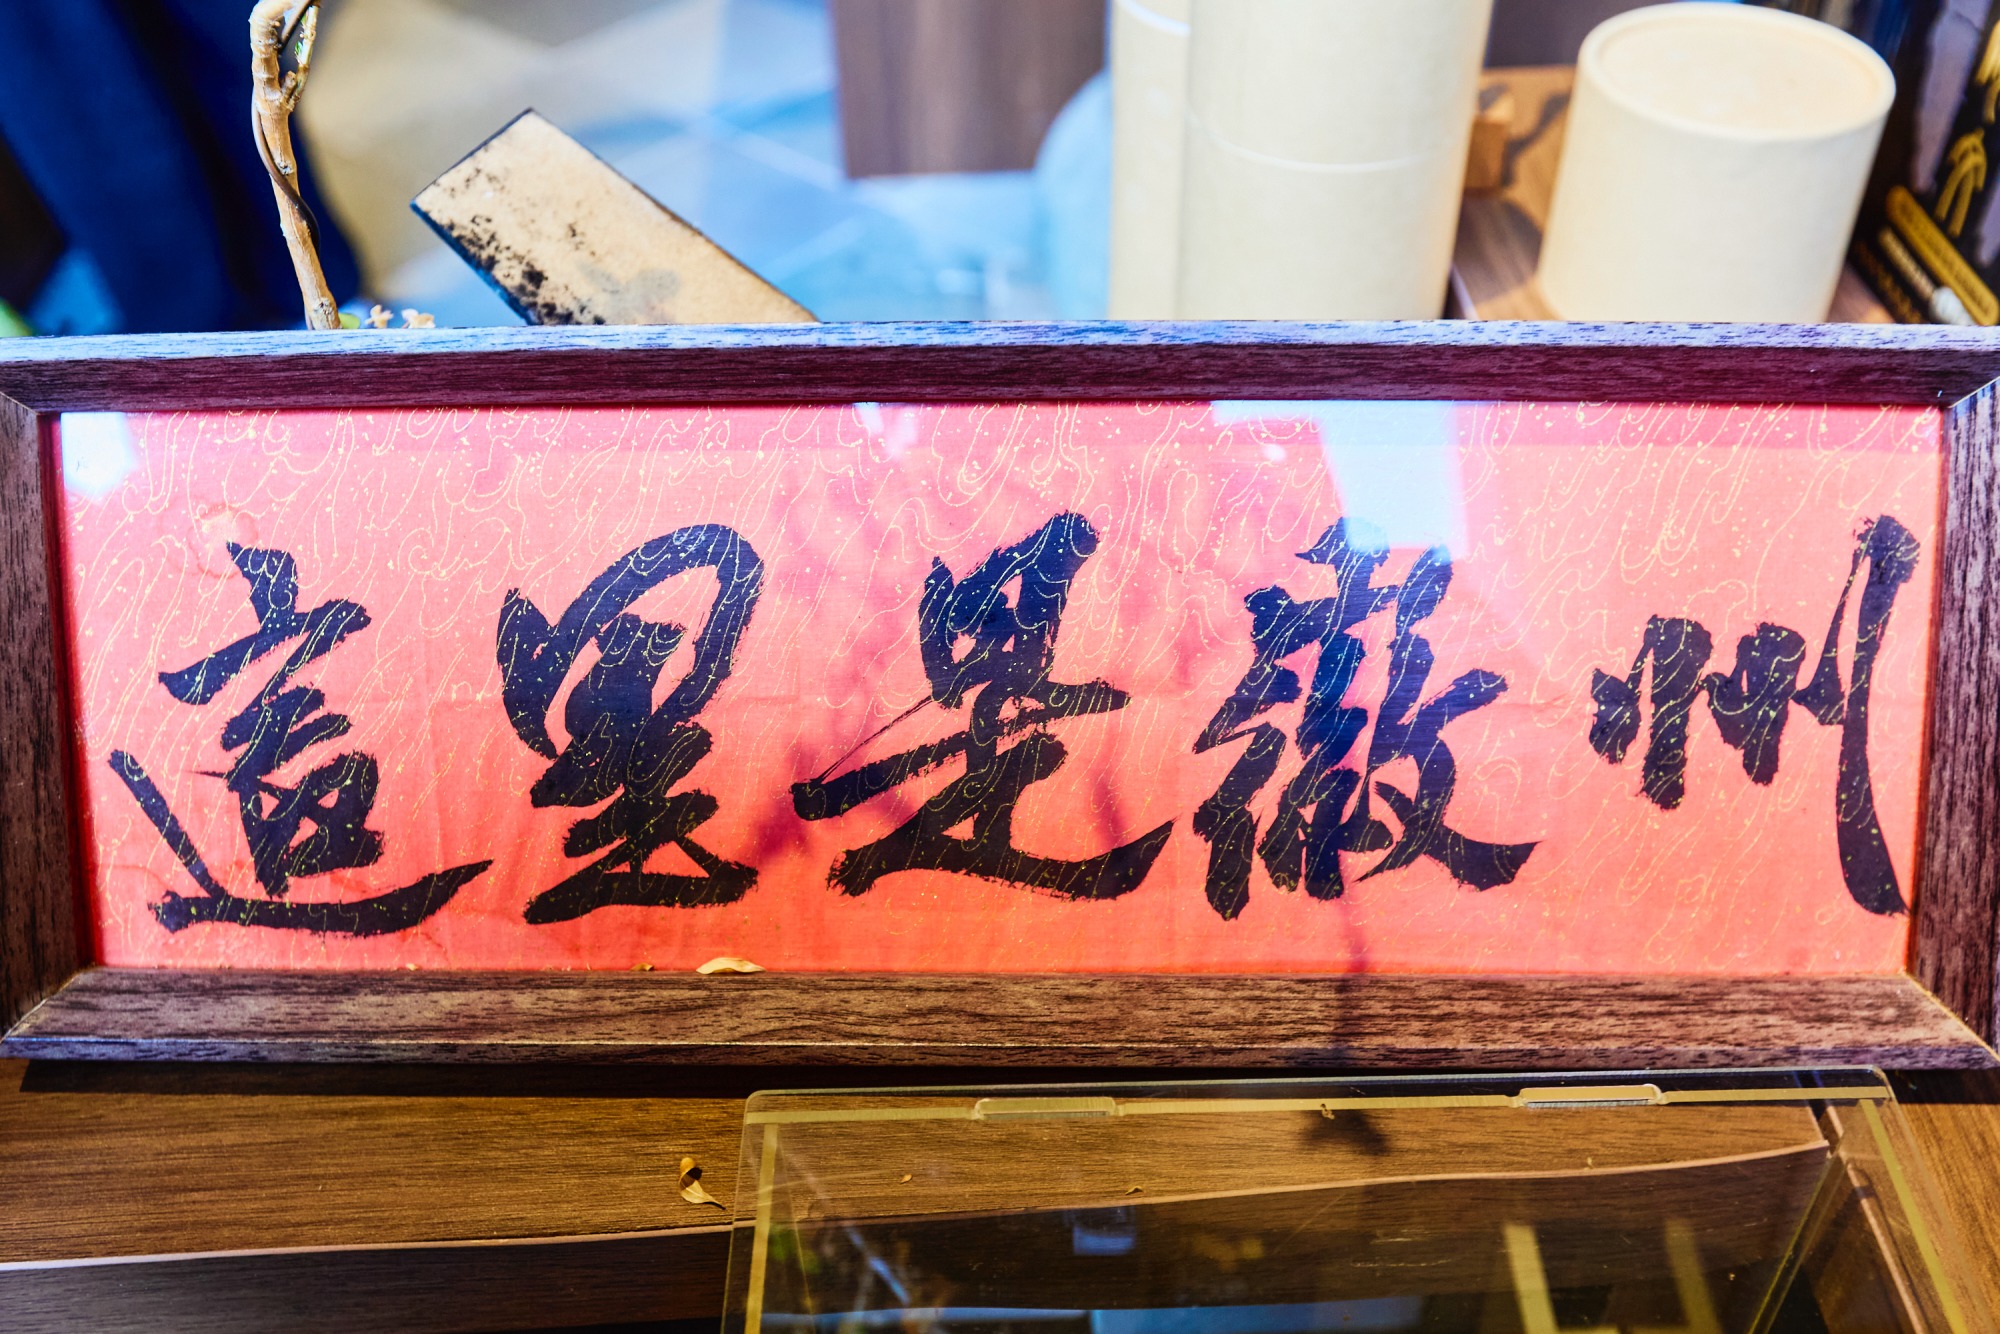 這里是徽州